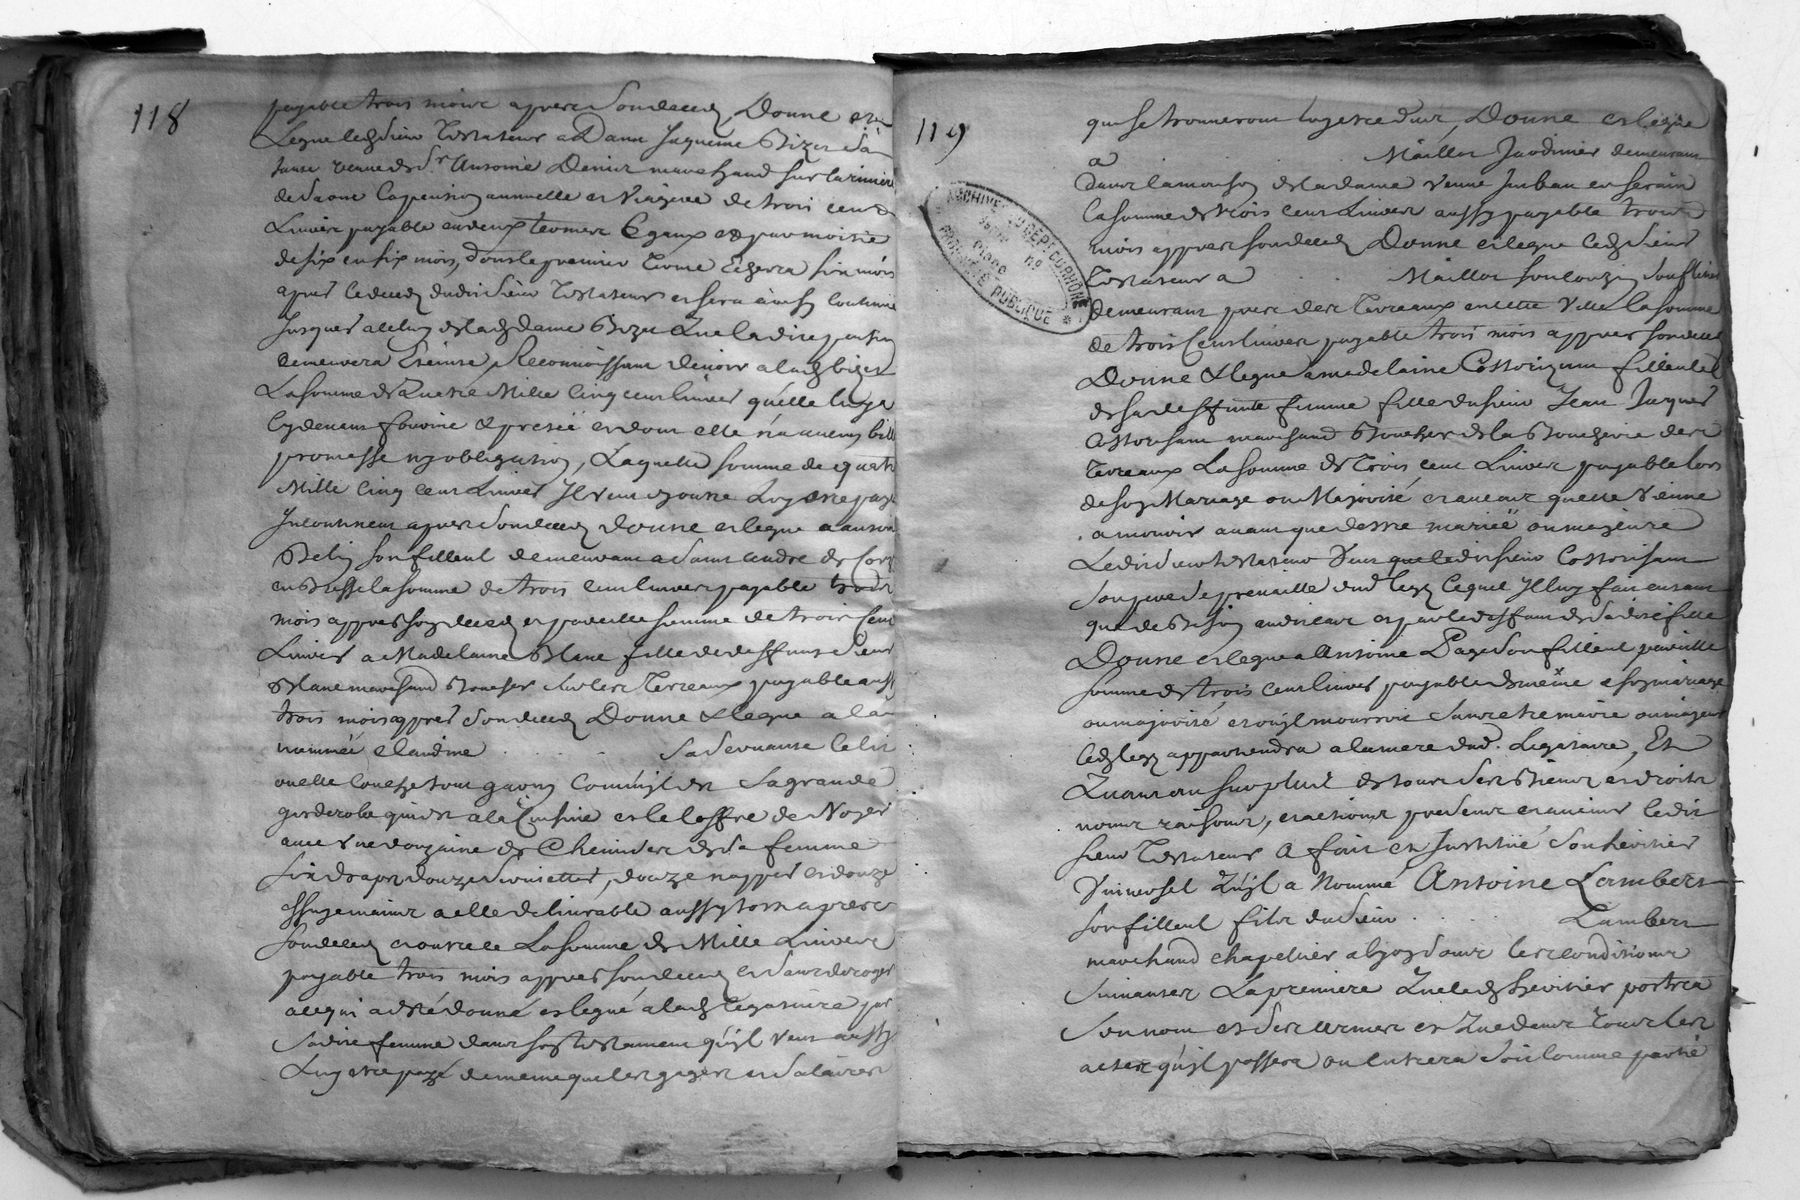 118
payable trois mois apres son deced Donne et
Legue ledt Sieur Testateur a Dame Bizet sa
tante veuve de Sr. Antoine Denis marchand sur la riviere
de Saone La pension annuelle et Viagere de trois cent
Livres payable en deux termes Egaux et par moitié
de six en six mois, dont le premier Terme Echerra six mois
apres le deced dudit Sieur Testateur et sera ainsy continué
Jusques a celuy de ladt dame Bizet Que la dite pension
demeurera Eteinte, Reconnoissant devoir a ladt bizet
La somme de Quatre Mille Cinq cent livres quelle luy a
Cy devant fournie et pretée et dont elle n'a aucun bill
promesse ny obligation, Laquelle somme de quatre
Mille Cinq cent Livres Il veut et luy etre payé
Incontinent apres son deced donne et legue a
son filleul demeurant a Saint andré de
en Bresse la somme de trois cent livres payable trois
mois appres son deced et pareille somme de trois Cent
Livres a Madelaine Blanc fille de deffunt Sieur
Blanc marchand Boucher sur les Terreaux payable aussy
trois mois appres son deced Donne et legue a la
nommée Claudine . . . . Sa Servante le lit
ou elle Couche tout garny Comm'il est Sa grande
garderobe qui est a la Cuisine et le Coffre de Noyer
avec une douzaine de Chemises de Sa femme
six draps, douze Serviettes, douze nappes et douze
essuyemains a elle delivrable aussytost apres
son deced et outre ce La somme de Mille Livres
payable trois mois appres son deced et sans deroger
a ce qui a esté donné et legué a ladt Legataire par
Sadite femme dans son testament qu'il veut aussy
Luy etre payé de meme que les gages et Salaires
119
qui se trouveront luy etre dus, Donne et legue
a . . . Maillot Jardinier demeurant
dans la maison de la dame veuve en Serain
La somme de trois cent Livres aussy payable trois
mois appres son deced Donne et legue ledt Sieur
Testateur a . . . Maillot son Cousin
demeurant pres des Terreaux en cette Ville la somme
de trois Cent livres payable trois mois appres son deced
Donne et legue a madelaine filleule
de sa deffunte femme fille du Sieur Jean Jacques
marchand Boucher de la Boucherie des
Terreaux La somme de trois cent Livres payable lors
de son Mariage ou Majorité, et au cas quelle Vienne
a mourir avant que d'estre mariée ou majeure
Ledit Sieur testateur Veut que ledit Sieur
son pere se prevaille dud Legs Lequel Il luy fait en tant
que de Besoin audit cas et par le deffaut de Sadite fille
Donne et legue a Antoine Page Son filleul pareille
somme de trois cent livres payable de même a son mariage
ou majorité et ou il mourroit sans etre marié ou majeur
ledt legs appartiendra a la mere dud. Legataire, Et
Quant au surplus de tous Ses Biens et droits
noms raisons, et actions presents et avenirs ledit
Sieur Testateur A fait et Institué Son heritier
Universel Qu'il a Nommé Antoine Lambert
son filleul fils du Sieur . . . . Lambert
marchand chapelier a Lyon Sous les conditions
Suivantes La premiere Que ledt heritier portera
Son nom et Ses armes et Que dans Tous les
actes qu'il passera ou entrera Soit comme partie
ARCHIVES DU DEPT DU RHÔNE
Série
Place no
PROPRIÉTÉ PUBLIQUE